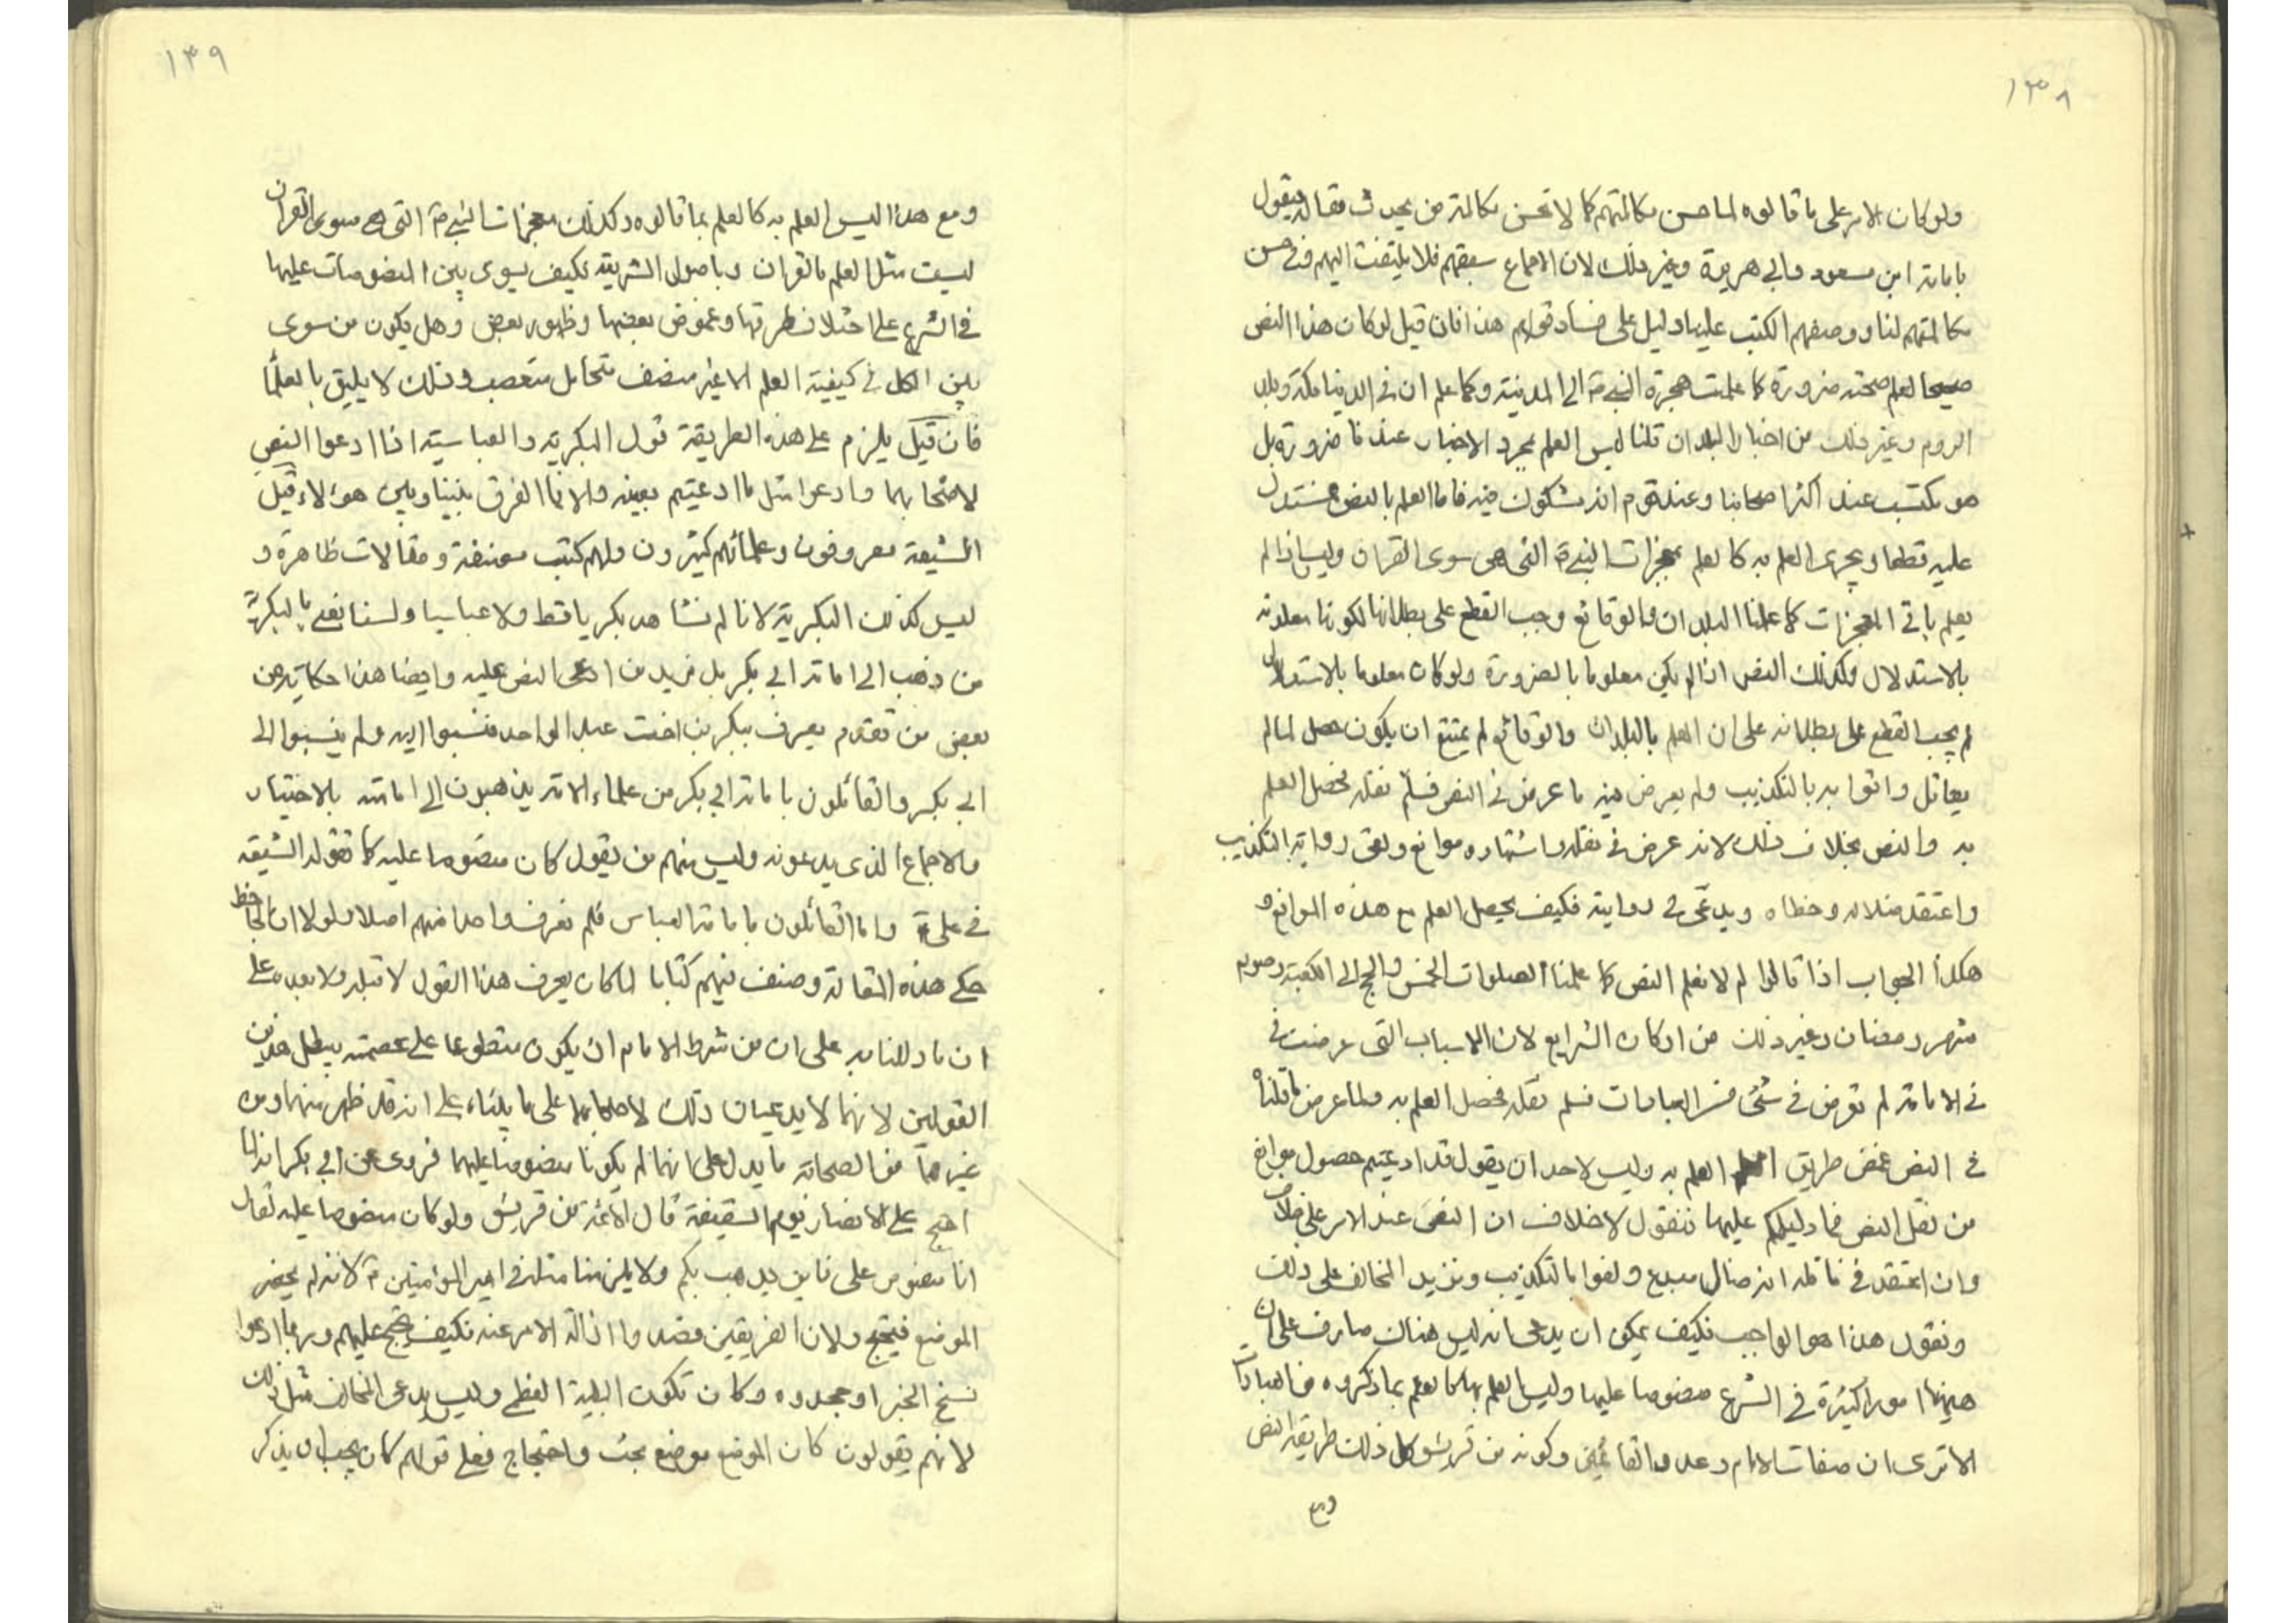 ١٣٨
ولو كان الامر على ما قالوه لما حسن مكالمتهم كما لا تحسن مكالمة من يحدث مقالة يقول
بامامة ابن مسعود وابي هريرة وغير ذلك لان الاجماع سبقهم فلا يلتفت اليهم وفي حسن
مكالمتهم لنا ووصفهم الكتب علينا دليل على فساد قولهم هذا فان قيل لو كان هذا النص
صحيحا لعلم صحته ضرورة كما علمت هجرة النبي ص الى المدينة وكما علم ان في الدنيا مكة وبلد
الروم وغير ذلك من اخبار البلدان قلنا ليس العلم بمجرد الاخبار عندنا ضرورة بل
هو مكتسب عند اكثر اصحابنا وعند قوم انه مشكوك فيه فاما العلم بالنص فمستدل
عليه قطعا ويجرى العلم به كالعلم بمعجزات النبي ص التى هى سوى القران وليس اذا لم
يعلم باقي المعجزات كما علمنا البلدان والوقائع وجب القطع على بطلانها لكونها معلومة
بالاستدلال وكذلك النص اذا لم يكن معلوما بالضرورة ولو كان معلوما بالاستدلال
لم يجب القطع على بطلانه على ان العلم بالبلدان والوقائع لم يمتنع ان يكون حصل لما لم
يقابل راويها بالتكذيب ولم يعرض فيه ما عرض في النص فسلم نقله فحصل العلم
به والنص بخلاف ذلك لانه عرض في نقله واشتهاره موانع ولقى رواية التكذيب
واعتقد ضلاله وخطاه ويدعى في رواية فكيف يحصل العلم مع هذه الموانع و
هكذا الجواب اذا قالوا لم لا نعلم النص كما علمنا الصلوات الخمس والحج الى الكعبة وصوم
شهر رمضان وغير ذلك من اركان الشرايع لان الاسباب التى عرضت في
في الامامة لم تعرض في شئ من العبادات فسلم نقله فحصل العلم به ولما عرض ما قلناه
في النص غمض طريق العلم به وليس لاحد ان يقول قد ادعيتم حصول موانع
من نقل النص فما دليلكم عليها فنقول لا خلاف ان النص عند الامر على خلاف
وان اعتقد في ناقله انه ضال مبدع ولقوا بالتكذيب ونزيد المخالف على ذلك
ونقول هذا هو الواجب فكيف يمكن ان يدعى انه ليس هناك صارف على ان
ههنا امورا كثيرة في الشرع منصوصا عليها وليس العلم بها كالعلم بما ذكروه من العبادات
الا ترى ان صفات الامام وعدد القائمين وكونه من قريش كل ذلك طريقه النص
ومع
١٣٩
ومع هذا ليس العلم به كالعلم بما قالوه وكذلك معجزات النبي ص التى هى سوى القران
ليست مثل العلم بالقران وباصول الشريعة فكيف يسوى بين المنصوصات عليها
في الشرع على اختلاف طرقها وغموض بعضها وظهور بعض وهل يكون من سوى
بين الكل في كيفية العلم الا غير منصف متحامل متعصب وذلك لا يليق بالعلما
فان قيل يلزم على هذه الطريقة قول البكرية والعباسية اذا ادعوا النص
لاصحابهما وادعوا مثل ما ادعيتم بعينه والا فما الفرق بيننا وبين هولاء قيل
الشيعة معروفون وعلمائهم كثيرون ولهم كتب مصنفة ومقالات ظاهرة و
ليس كذلك البكرية لانا لم نشاهد بكريا قط ولا عباسيا ولسنا نعني بالبكرية
من ذهب الى امامة ابي بكر بل نريد من ادعى النص عليه وايضا هذا حكاية عن
بعض من تقدم يعرف ببكر بن اخت عبد الواحد فنسبوا اليه ولم ينسبوا الى
ابي بكر والقائلون بامامة ابي بكر من علماء الامة يذهبون الى امامته بالاختيار
والاجماع الذى يدعونه وليس منهم من يقول كان منصوصا عليه كما تقوله الشيعة
في علي ع واما القائلون بامامة العباس فلم نعرف واحدا منهم اصلا ولولا ان الجاحظ
حكى هذه المقالة وصنف فيهم كتابا لما كان يعرف هذا القول لا قبله ولا بعده على
ان ما دللنا به على ان من شرط الامام ان يكون مقطوعا على عصمته يبطل هذين
القولين لانهما لا يدعيان ذلك لاصحابهما على ما بيناه على انه قد ظهر منهما ومن
غيرهما من الصحابة ما يدل على انهما لم يكونا منصوصا عليهما فروى عن ابي بكر انه لما
احتج على الانصار يوم السقيفة قال الائمة من قريش ولو كان منصوصا عليه لقال
انا منصوص على فاين يذهب بكم ولا يلزمنا مثله في امير المؤمنين ع لانه لم يحضر
الموضع فيحتج ولان الفريقين قصدوا ازالة الامر عنه فكيف يحتج عليهم وربما ادعوا
نسخ الخبر او جحدوه وكان تكون البلية العظمى وليس يدعى المخالف مثل ذلك
لانهم يقولون كان الموضع موضع بحث واحتجاج فعلى قولهم كان يجب ان يذكر